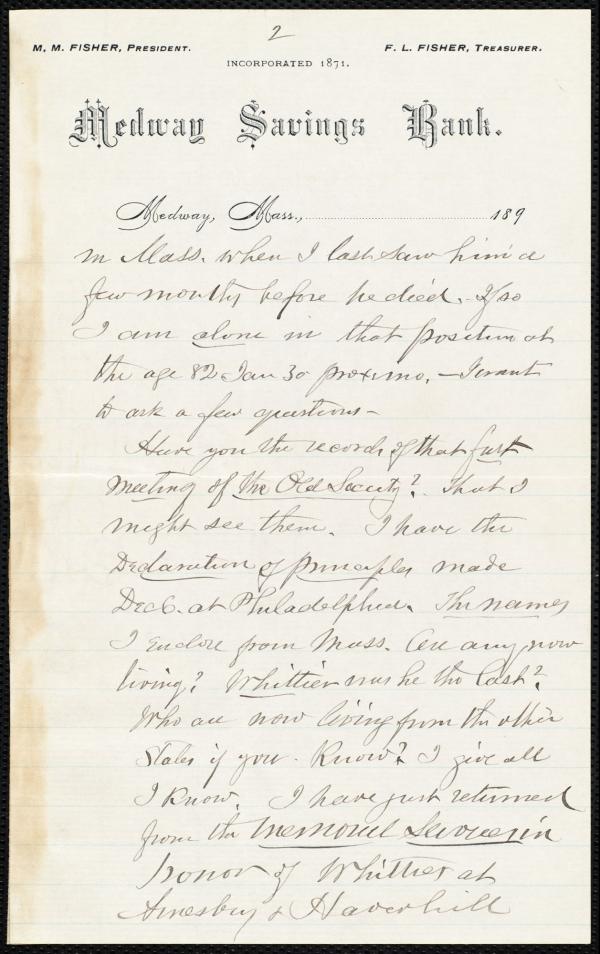 2
M. M. FISHER, PRESIDENT. F. L. FISHER, TREASURER.
INCORPORATED 1871.
Medway Savings Bank.
Medway, Mass., 189
in Mass. when I last saw him a
few months before he died. If so
I am alone in that position at
the age 82 Jan 30 proximo. - I want
to ask a few questions -
Have you the records of that first
meeting of the Old Society? That I
might see them. I have the
Declaration of principles made
Dec 6. at Philadelphia. The names
I enclose from Mass. Are any now
living? Whittier was he the last?
Who are now living from the other
States if you know? I give all
I know. I have just returned
from the Memorial Services in
honor of Whittier at
Amesbury & Haverhill